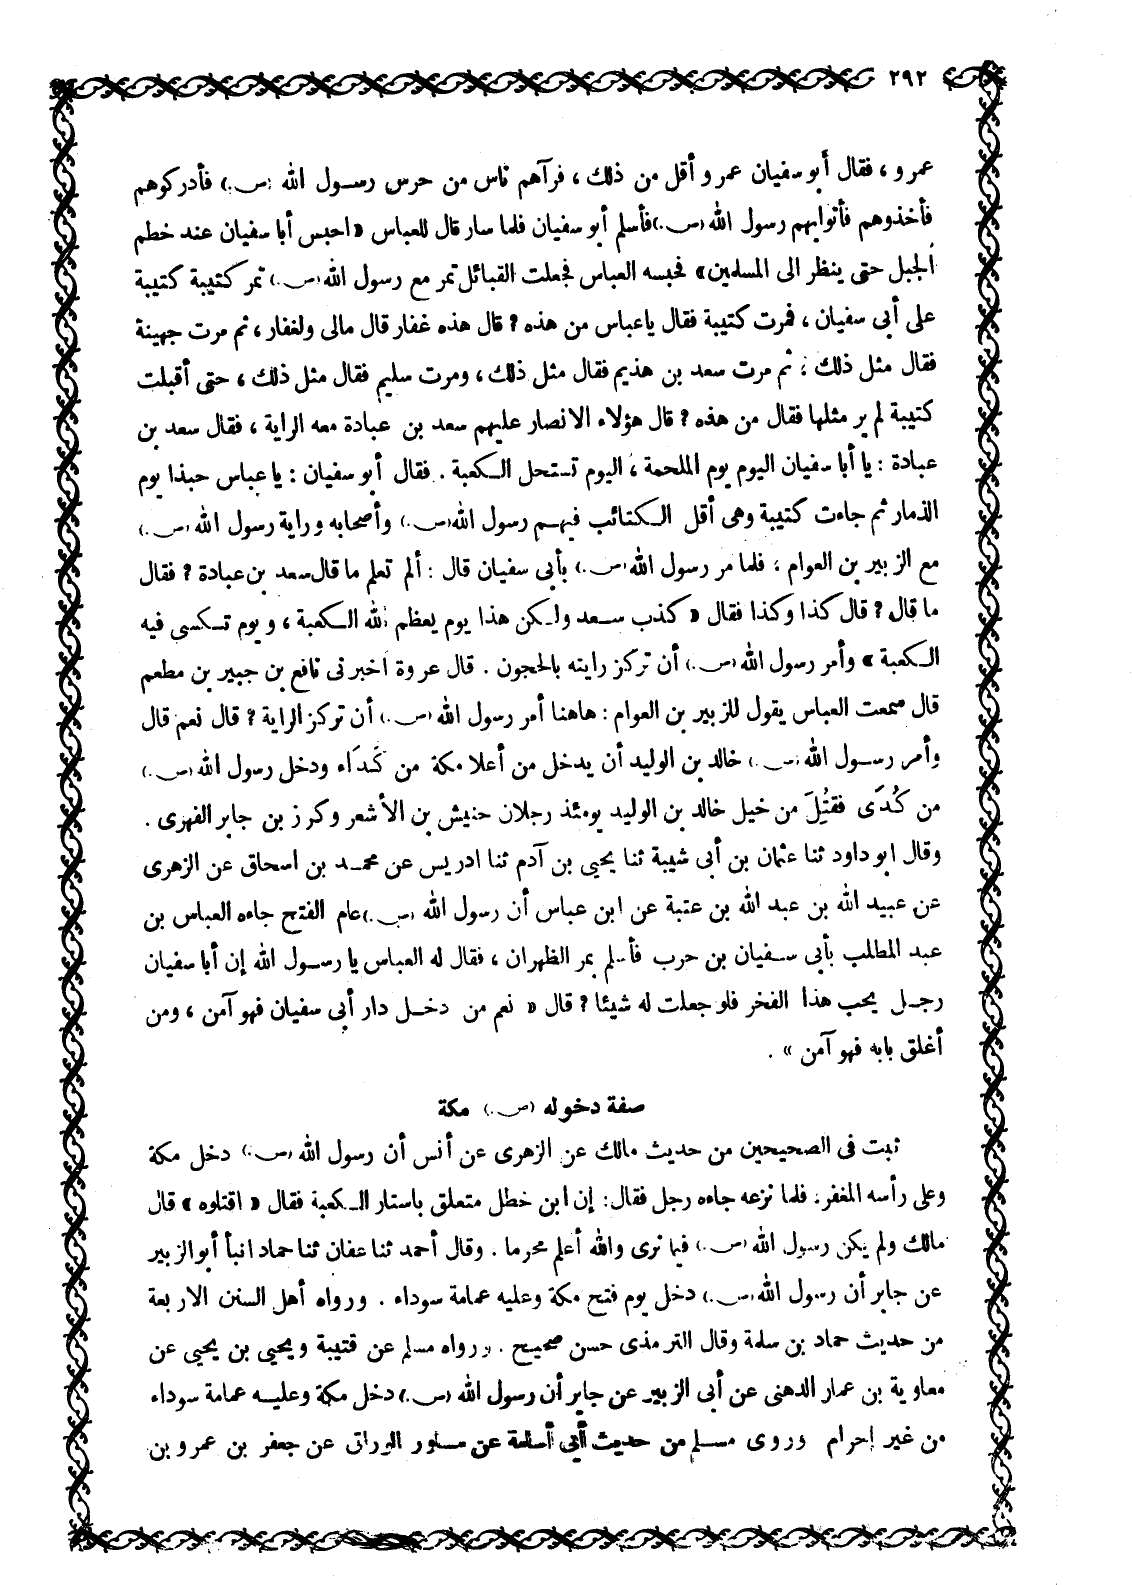 ٢٩٢
عمرو ، فقال أبو سفيان عمرو أقل من ذلك ، فرآهم ناس من حرس رسول الله (ص.) فأدركوهم
فأخذوهم فأتوا بهم رسول الله (ص.) فأسلم أبو سفيان فلما سار قال للعباس « احبس أبا سفيان عند خطم
الجبل حتى ينظر الى المسلمين » فحبسه العباس فجعلت القبائل تمر مع رسول الله (ص.) تمر كتيبة كتيبة
على أبى سفيان ، فمرت كتيبة فقال ياعباس من هذه ? قال هذه غفار قال مالى ولغفار ، ثم مرت جهينة
فقال مثل ذلك ، ثم مرت سعد بن هذيم فقال مثل ذلك ، ومرت سليم فقال مثل ذلك ، حتى أقبلت
كتيبة لم ير مثلها فقال من هذه ? قال هؤلاء الانصار عليهم سعد بن عبادة معه الراية ، فقال سعد بن
عبادة : يا أبا سفيان اليوم يوم الملحمة ، اليوم تستحل الكعبة . فقال أبو سفيان : يا عباس حبذا يوم
الذمار ثم جاءت كتيبة وهى أقل الكتائب فيهم رسول الله (ص.) وأصحابه وراية رسول الله (ص.)
مع الزبير بن العوام ، فلما مر رسول الله (ص.) بأبى سفيان قال : ألم تعلم ما قال سعد بن عبادة ? فقال
ما قال ? قال كذا وكذا فقال « كذب سعد ولكن هذا يوم يعظم الله الكعبة ، ويوم تكسى فيه
الكعبة » وأمر رسول الله (ص.) أن تركز رايته بالحجون . قال عروة أخبرنى نافع بن جبير بن مطعم
قال سمعت العباس يقول للزبير بن العوام : هاهنا أمر رسول الله (ص.) أن تركز الراية ? قال نعم قال
وأمر رسول الله (ص.) خالد بن الوليد أن يدخل من أعلا مكة من كَدَاء ودخل رسول الله (ص.)
من كُدَى فقتُِلَ من خيل خالد بن الوليد يومئذ رجلان حنيش بن الأشعر وكرز بن جابر الفهرى .
وقال ابو داود ثنا عثمان بن أبى شيبة ثنا يحيى بن آدم ثنا ادريس عن محمد بن اسحاق عن الزهرى
عن عبيد الله بن عبد الله بن عتبة عن ابن عباس أن رسول الله (ص.) عام الفتح جاءه العباس بن
عبد المطلب بأبى سفيان بن حرب فأسلم بمر الظهران ، فقال له العباس يا رسول الله إن أبا سفيان
رجل يحب هذا الفخر فلو جعلت له شيئا ? قال « نعم من دخل دار أبى سفيان فهو آمن ، ومن
أغلق بابه فهو آمن » .
صفة دخوله (ص.) مكة
ثبت فى الصحيحين من حديث مالك عن الزهرى عن أنس أن رسول الله (ص.) دخل مكة
وعلى رأسه المغفر، فلما نزعه جاءه رجل فقال : إن ابن خطل متعلق باستار الكعبة فقال « اقتلوه » قال
مالك ولم يكن رسول الله (ص.) فيما نرى والله أعلم محرما . وقال أحمد ثنا عفان ثنا حماد انبأ أبو الزبير
عن جابر أن رسول الله (ص.) دخل يوم فتح مكة وعليه عمامة سوداء . ورواه أهل السنن الاربعة
من حديث حماد بن سلمة وقال الترمذى حسن صحيح . ورواه مسلم عن قتيبة ويحيى بن يحيى عن
معاوية بن عمار الدهنى عن أبى الزبير عن جابر أن رسول الله (ص.) دخل مكة وعليه عمامة سوداء
من غير إحرام وروى مسلم من حديث أبى أسامة عن مساور الوراق عن جعفر بن عمرو بن